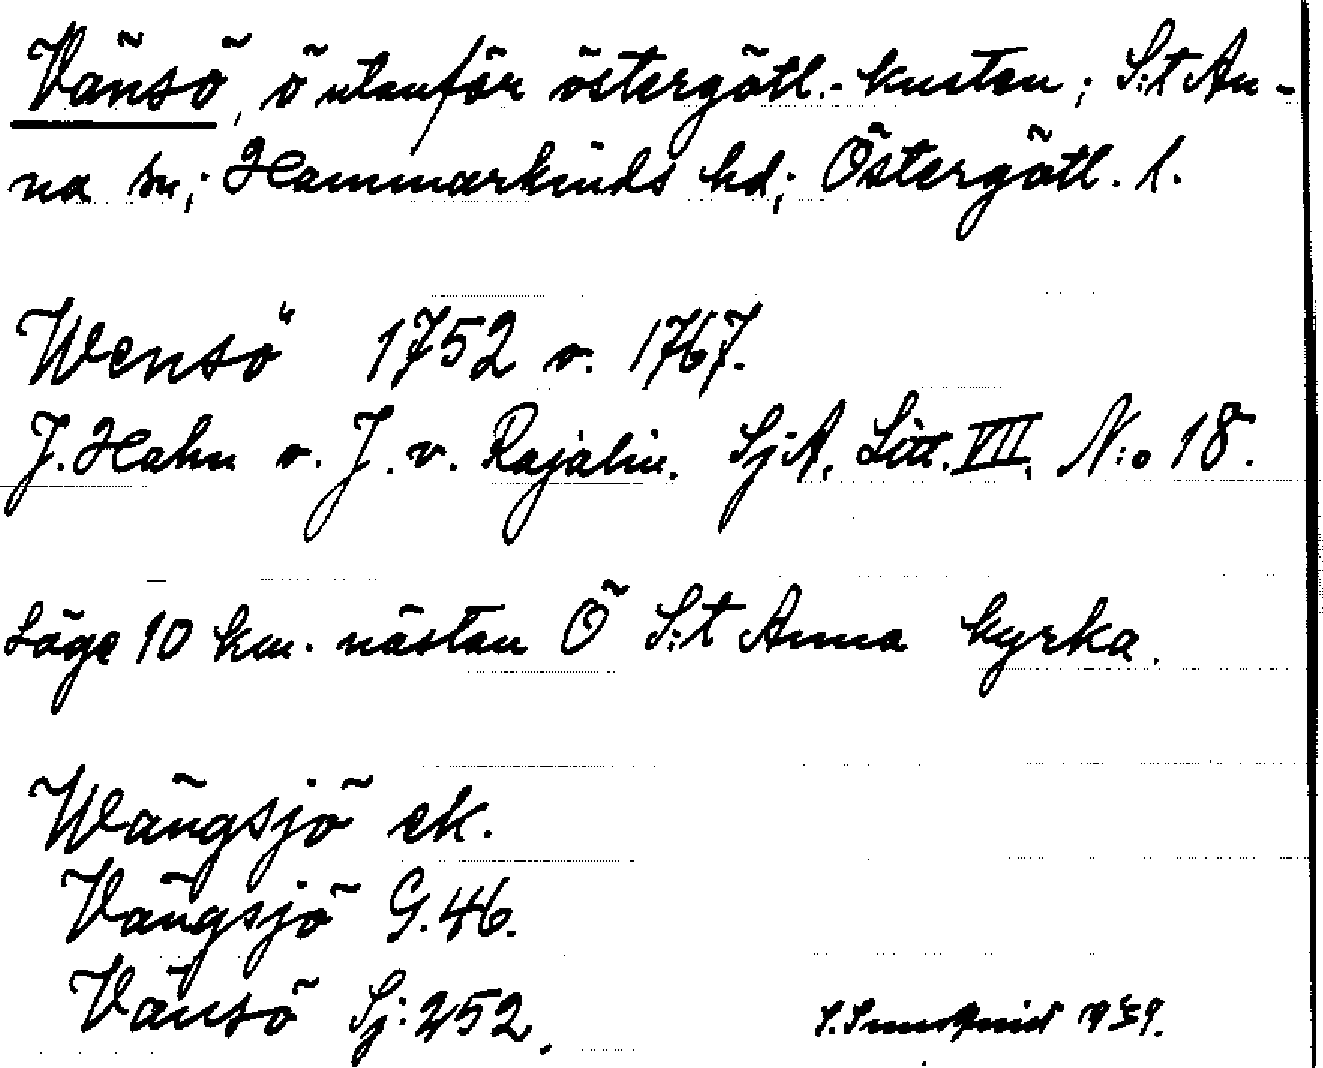 Vänsö, ö utanför östergötl.-kusten; S:t An-
na sn; Hammarkinds hd; Östergötl. l.
Wensö 1752 o. 1767.
J. Hahn o. J. v. Rajalin. Sj.A. Litt. VII. N:o 18.
Läge 10 km. nästan Ö S:t Anna kyrka.
Wängsjö ek.
Vängsjö G.46.
Vänsö Sj:252.